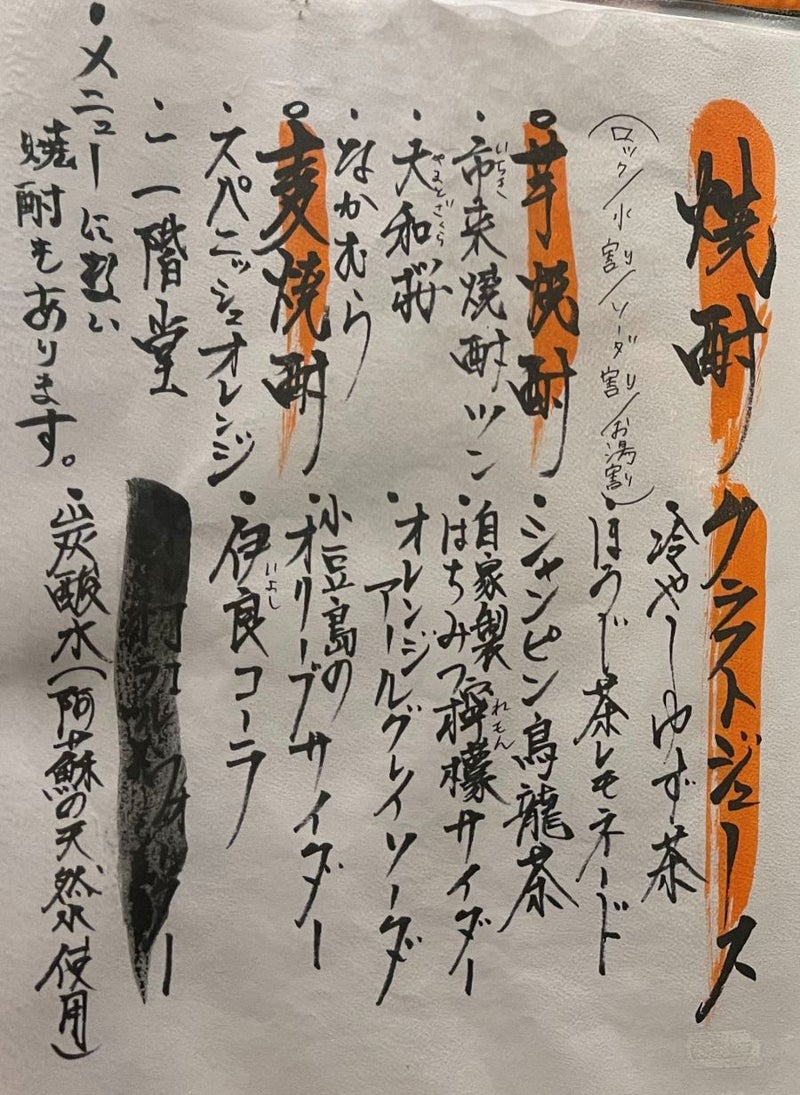 焼酎
(ロック/水割り/ソーダ割り/お湯割り)
芋焼酎
・市来焼酎ツン
いちき
・大和桜
やまとざくら
・なかむら
麦焼酎
・スパニッシュオレンジ
・二階堂
・メニューに無い
焼酎もあります。
クラフトジュース
・冷やしゆず茶
・ほうじ茶レモネード
・シャンピン烏龍茶
・自家製
はちみつ檸檬サイダー
れもん
・オレンジ
アールグレイソーダ
・小豆島の
オリーブサイダー
・伊良コーラ
いよし
・炭酸水(阿蘇の天然水使用)